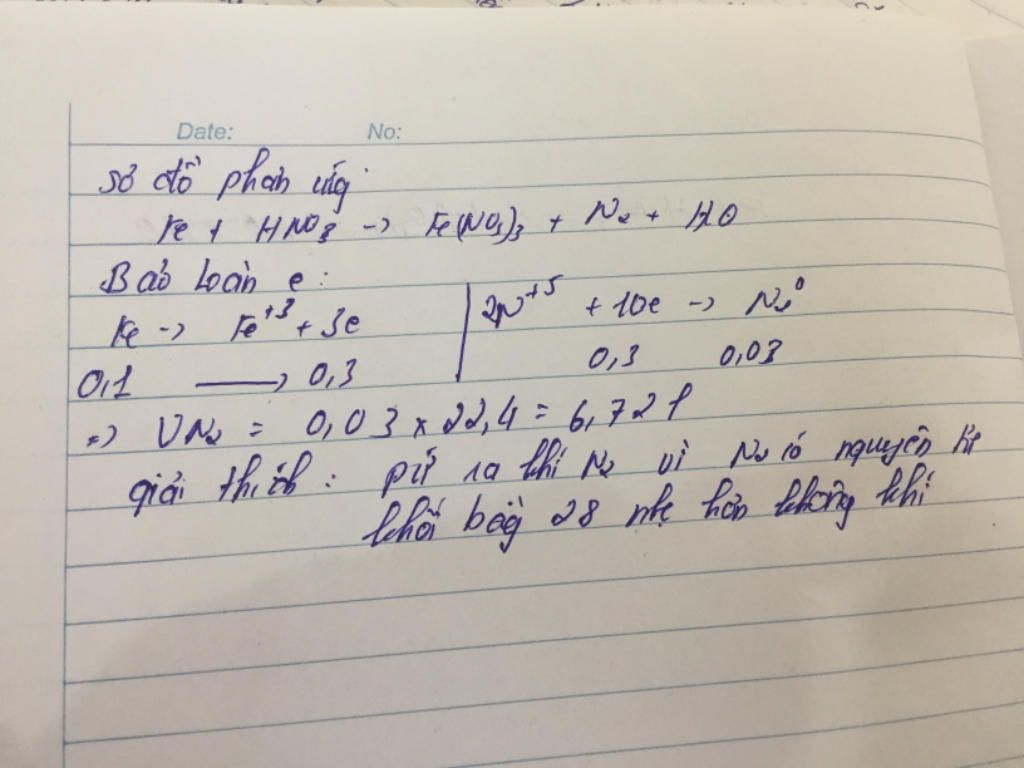 Date: No:
Sơ đồ phản ứg:
Fe + HNO3 -> Fe(NO3)3 + N2 + H2O
Bảo toàn e:
Fe -> Fe+3 + 3e
2N+5 + 10e -> N2 0
0,1 -> 0,3
0,3 0,03
=> VN2 = 0,03 x 22,4 = 6,72 l
giải thích: pứ ra khí N2 vì N2 có nguyên
khối bằg 28 nhẹ hơn không khí